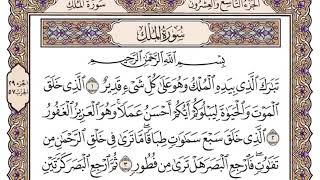 الجزء التاسع والعشرون
سورة الملك
سُورَةُ المُلْكِ
بِسْمِ اللَّهِ الرَّحْمَٰنِ الرَّحِيمِ
تَبَارَكَ الَّذِي بِيَدِهِ الْمُلْكُ وَهُوَ عَلَىٰ كُلِّ شَيْءٍ قَدِيرٌ ١ الَّذِي خَلَقَ
الْمَوْتَ وَالْحَيَاةَ لِيَبْلُوَكُمْ أَيُّكُمْ أَحْسَنُ عَمَلًا وَهُوَ الْعَزِيزُ الْغَفُورُ
٢ الَّذِي خَلَقَ سَبْعَ سَمَاوَاتٍ طِبَاقًا مَّا تَرَىٰ فِي خَلْقِ الرَّحْمَٰنِ مِن
تَفَاوُتٍ فَارْجِعِ الْبَصَرَ هَلْ تَرَىٰ مِن فُطُورٍ ٣ ثُمَّ ارْجِعِ الْبَصَرَ كَرَّتَيْنِ
الجزء ٢٩
الحزب ٥٧